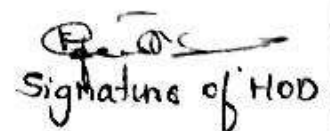 Signature of HOD